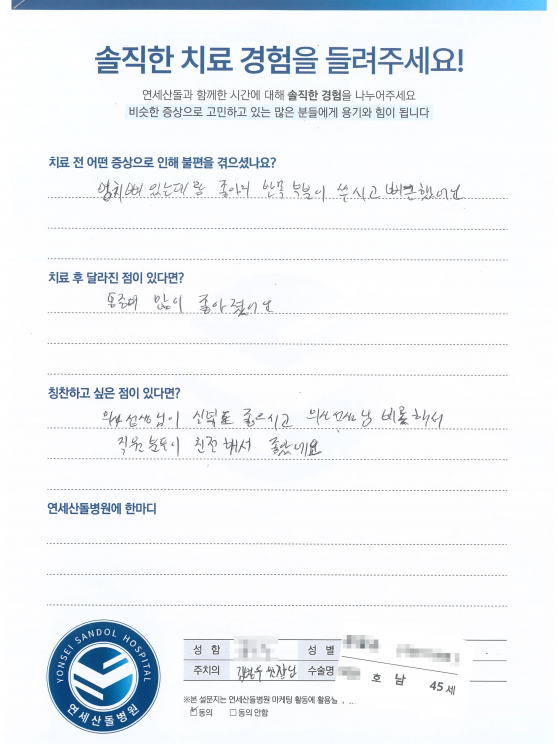 솔직한 치료 경험을 들려주세요!
연세산돌과 함께한 시간에 대해 솔직한 경험을 나누어주세요
비슷한 증상으로 고민하고 있는 많은 분들에게 용기와 힘이 됩니다
치료 전 어떤 증상으로 인해 불편을 겪으셨나요?
엉치뼈 있는데랑 종아리 발목 부분이 쑤시고 뻐근했어요
치료 후 달라진 점이 있다면?
많이 좋아졌어요
칭찬하고 싶은 점이 있다면?
의사선생님이 좋으시고 의사선생님 비롯해서
직원분들이 친절해서 좋았네요
연세산돌병원에 한마디
YONSEI SANDOL HOSPITAL
연세산돌병원
성 함
성 별
주치의
수술명
호 남 45세
※본 설문지는 연세산돌병원 마케팅 활동에 활용될
동의 동의 안함